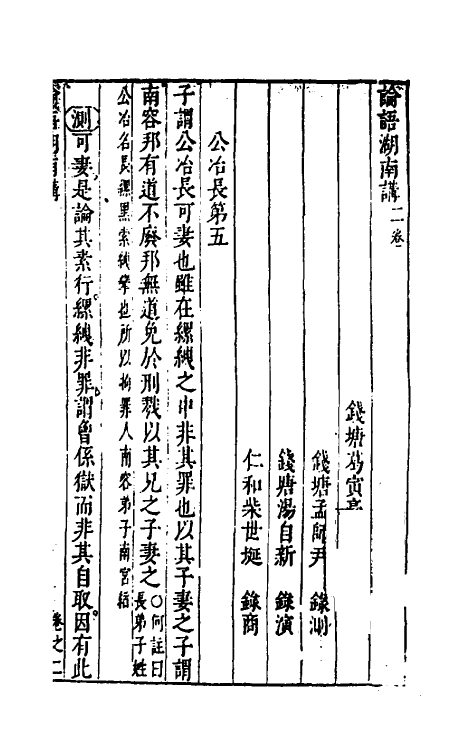 論語湖南講二卷
錢塘葛寅亮
錢塘孟師尹　錄測
錢塘湯自新　錄演
仁和柴世埏　錄商
公冶長第五
子謂公冶長可妻也雖在縲絏之中非其罪也以其子妻之子謂
南容邦有道不廢邦無道免於刑戮以其兄之子妻之○何註曰長弟子姓
公冶名長縲黑索絏攣也所以拘罪人南容弟子南宮縚
測可妻是論其素行縲絏非罪謂曾係獄而非其自取因有此
卷之二